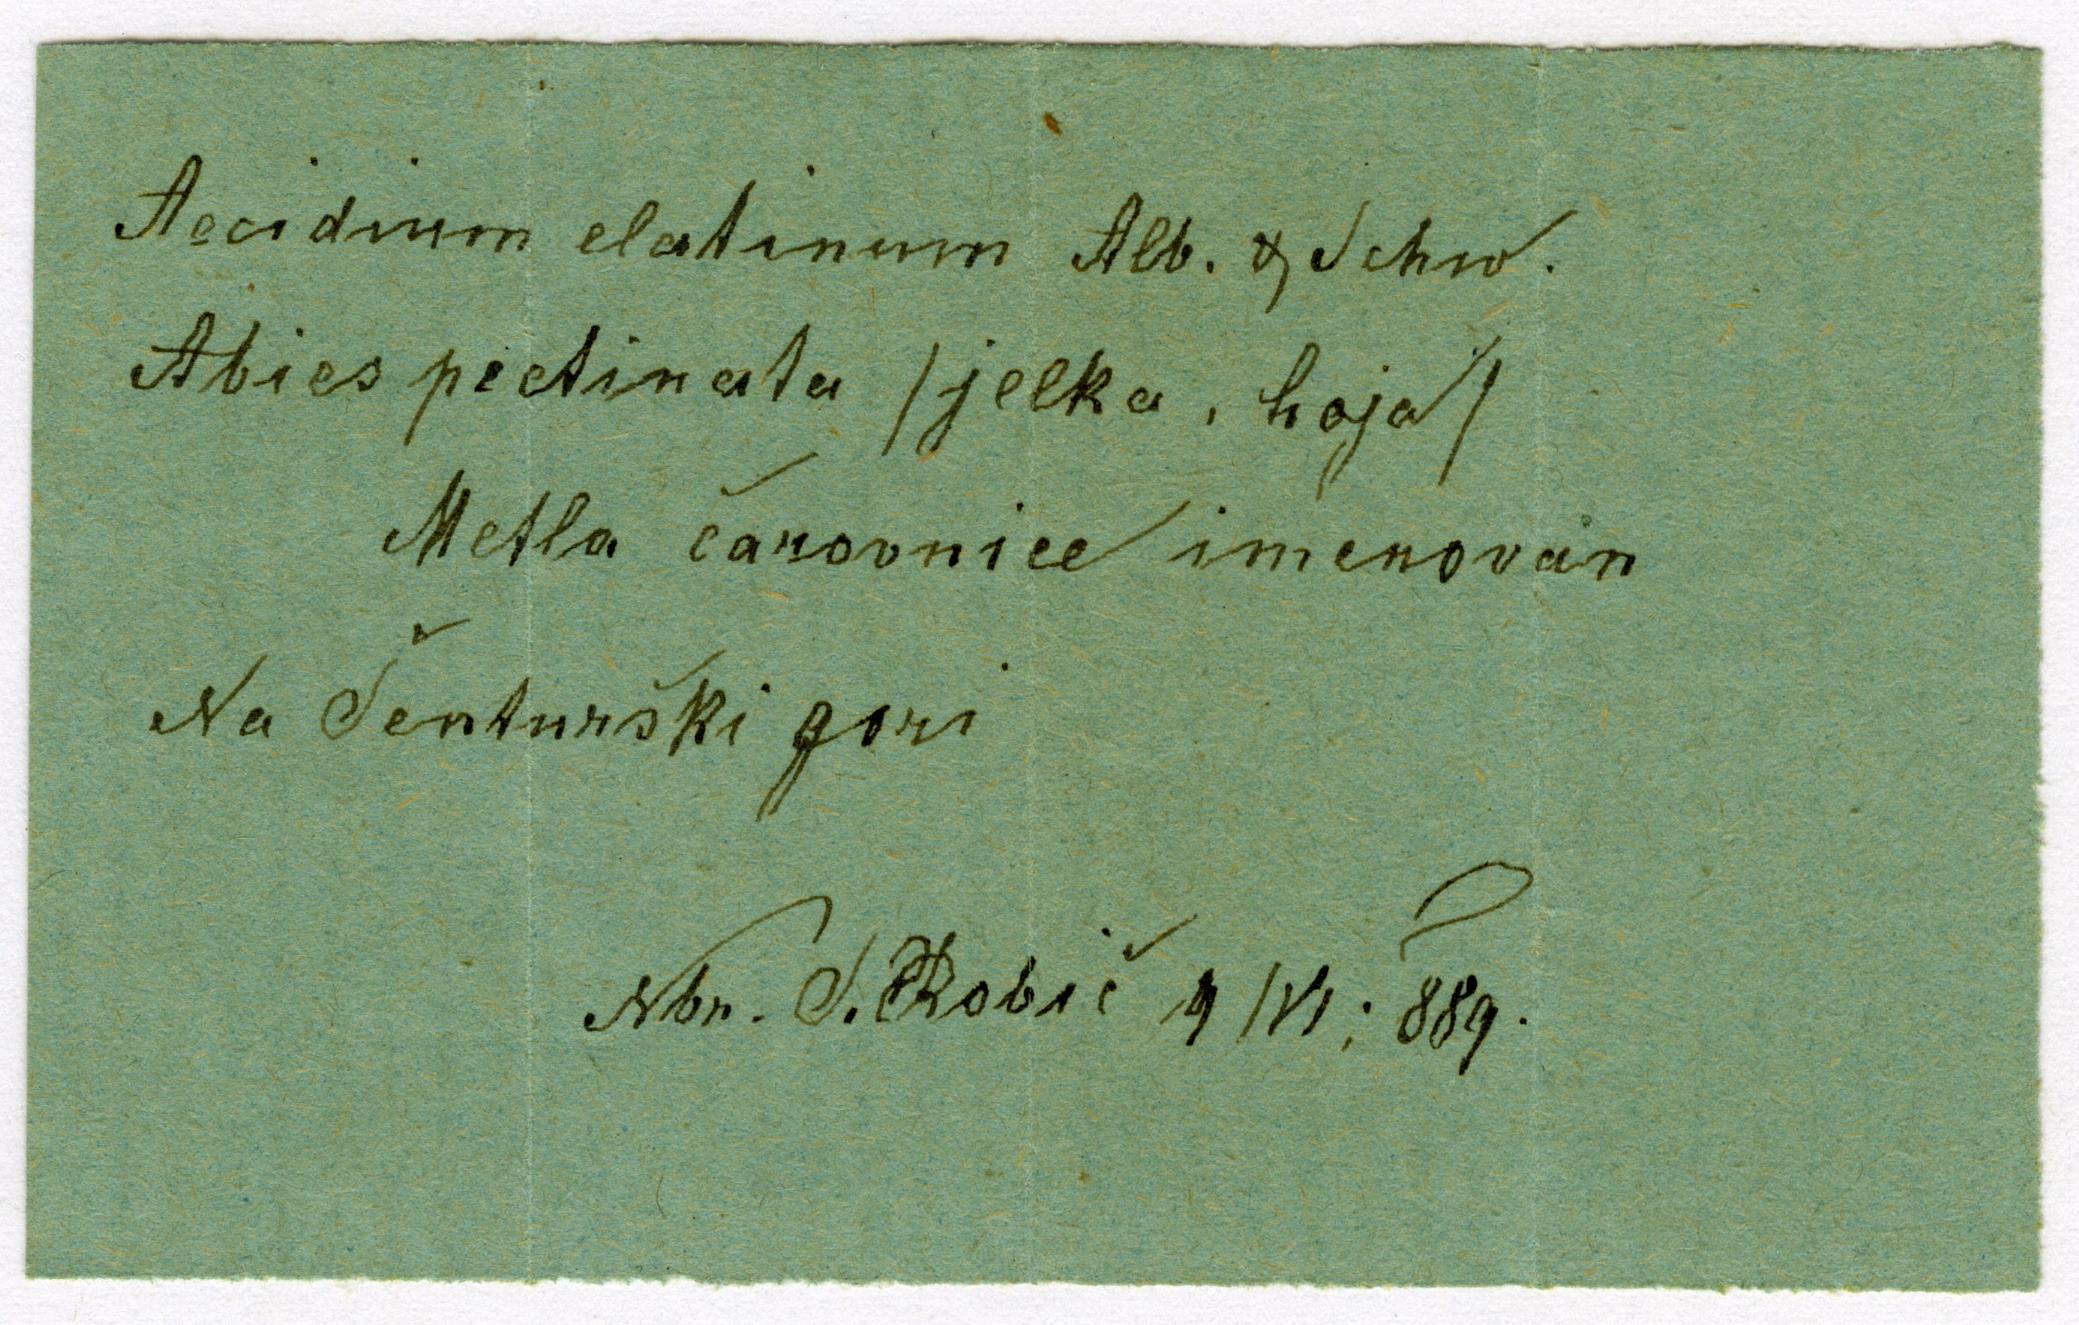 Aecidium elatinum Alb. & Schw.
Abies pectinata /jelka, hoja/
Metla čarovnice imenovan
Na Šenturški gori
Nbr. S. Robič 9/VI; 889.